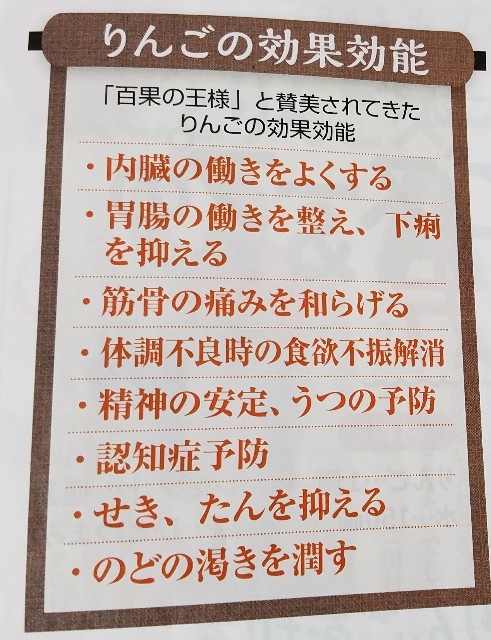 りんごの効果効能
「百果の王様」と賛美されてきた
りんごの効果効能
・内臓の働きをよくする
・胃腸の働きを整え、下痢
を抑える
・筋骨の痛みを和らげる
・体調不良時の食欲不振解消
・精神の安定、うつの予防
・認知症予防
・せき、たんを抑える
・のどの渇きを潤す